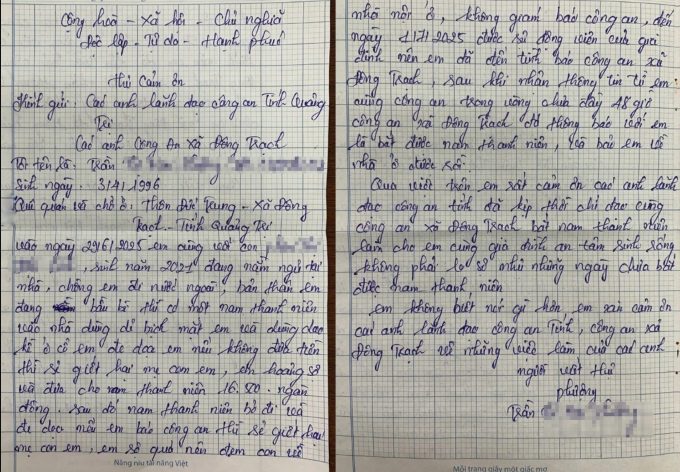 Cộng hoà - Xã hội - Chủ nghĩa
Độc lập - Tự do - Hạnh phúc
Thư Cảm ơn
Kính gửi: Các anh lãnh đạo công an Tỉnh Quảng
Trị
Các anh Công An xã Đông Trạch
Tôi tên là: Trần
Sinh ngày: 3/4/1996
Quê quán và chỗ ở: Thôn Đức Trung - Xã Đông
Trạch - Tỉnh Quảng Trị
vào ngày 29/6/2025 em cùng với con
, sinh năm 2021 đang nằm ngủ tại
nhà, chồng em đi nước ngoài, bản thân em
đang bầu bì thì có một nam thanh niên
vào nhà dùng để bịch mặt em và dùng dao
kề ở cổ em đe doạ em nếu không đưa tiền
thì sẽ giết hai mẹ con em, em hoảng sợ
và đưa cho nam thanh niên 16.500. ngàn
đồng. Sau đó nam thanh niên bỏ đi và
đe doạ nếu em báo công an thì sẽ giết hai
mẹ con em, em sợ quá nên đem con về
Nâng niu tài năng Việt
nhà nội ở, không giám báo công an, đến
ngày 1/7/2025 được sự động viên của gia
đình nên em đã đến trình báo công an xã
Đông Trạch, sau khi nhận thông tin từ em
cùng công an trong vòng chưa đầy 48 giờ
công an xã Đông Trạch đã thông báo với em
là bắt được nam thanh niên, và bảo em về
nhà ở được rồi.
Qua việc trên em rất cảm ơn các anh lãnh
đạo công an tỉnh đã kịp thời chỉ đạo cùng
công an xã Đông Trạch bắt nam thanh niên
làm cho em cùng gia đình an tâm sinh sống
không phải lo sợ như những ngày chưa bắt
được nam thanh niên
em không biết nói gì hơn, em xin cảm ơn
các anh lãnh đạo công an Tỉnh, công an xã
Đông Trạch về những việc làm của các anh
người viết thư
phường
Trần
Mỗi trang giấy một giấc mơ